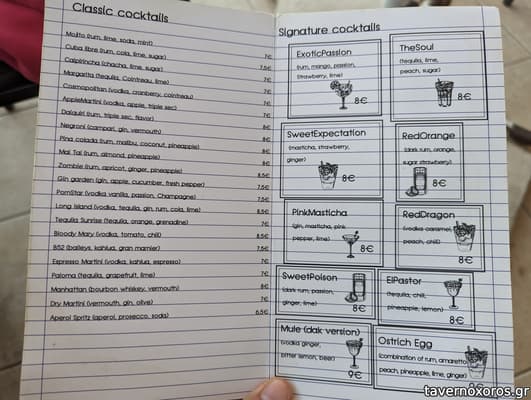 Classic cocktails
Mojito (rum, lime, soda, mint)
Cuba libre (rum, cola, lime, sugar) 7€
Caipirincha (chacha, lime, sugar) 7,5€
Margarita (tequila, Cointreau, lime) 7€
Cosmopolitan (vodka, cranberry, cointreau) 7€
AppleMartini (vodka, apple, triple sec) 7€
Daiquiri (rum, triple sec, flavor) 8€
Negroni (campari, gin, vermouth) 8€
Pina colada (rum, malibu, coconut, pineapple) 8€
Mai Tai (rum, almond, pineapple) 8€
Zombie (rum, apricot, ginger, pineapple) 8,5€
Gin garden (gin, apple, cucumber, fresh pepper) 7,5€
PornStar (vodka vanilla, passion, Champagne) 7,5€
Long Island (vodka, tequila, gin, rum, cola, lime) 8€
Tequila Sunrise (tequila, orange, grenadine) 8,5€
Bloody Mary (vodka, tomato, chili) 7€
B52 (baileys, kahlua, gran marnier) 7,5€
Espresso Martini (vodka, kahlua, espresso) 7€
Paloma (tequila, grapefruit, lime) 7€
Manhattan (bourbon whiskey, vermouth) 8€
Dry Martini (vermouth, gin, olive) 7€
Aperol Spritz (aperol, prosecco, soda) 6,5€
Signature cocktails
ExoticPassion
(rum, mango, passion,
Strawberry, lime)
8€
TheSoul
(tequila, lime,
peach, sugar)
8€
SweetExpectation
(masticha, strawberry,
ginger)
8€
RedOrange
(dark rum, orange,
sugar strawberry)
8€
PinkMasticha
(gin, masticha, pink
pepper, lime)
8€
RedDragon
(vodka caramel,
peach, chili)
8€
SweetPoison
(dark rum, passion,
ginger, lime)
8€
ElPastor
(tequila, chili,
pineapple, lemon)
8€
Mule (dak version)
(vodka ginger,
bitter lemon, beer)
9€
Ostrich Egg
(combination of rum, amaretto
peach, pineapple, lime, ginger)
9€
tavernoxoros.gr